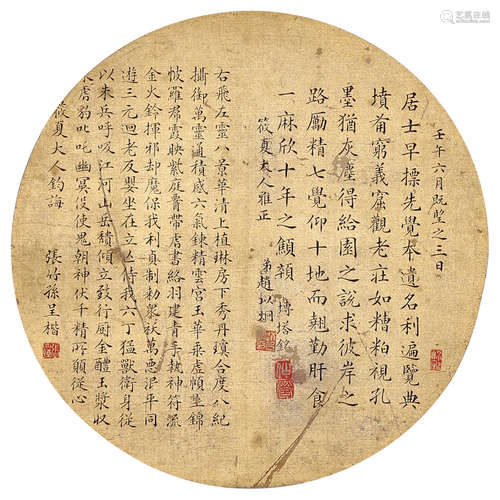 艺狐在线
壬午六月既望之三日
居士早標先覺本遺名利遍覽典
墳俻窮義窟觀老莊如糟粕視孔
墨猶灰塵得給園之說求彼岸之
路勵精七覺仰十地而翹勤肝食
一麻欣十年之顛穎 磚塔銘
筱夏大人雅正
弟趙以炯
右飛左靈八景華清上植琳房下秀丹瓊合度八紀
攝御萬靈通積感六氣鍊精雲宮玉華乘虛順生錦
帔羅裙霞映紫庭腎帶虎書絡羽建青手執神符流
金火鈴揮邪却魔保我利貞制勑眾祅萬惡泯平同
遊三元迴老反嬰坐在立亾侍我六丁猛獸衛身從
以朱兵呼吸江河山岳頹傾立致行廚金醴玉漿收
束虎豹叱吒幽冥役使鬼朝神伏千精所願從心
筱夏大人鈞誨
張竹孫呈楷